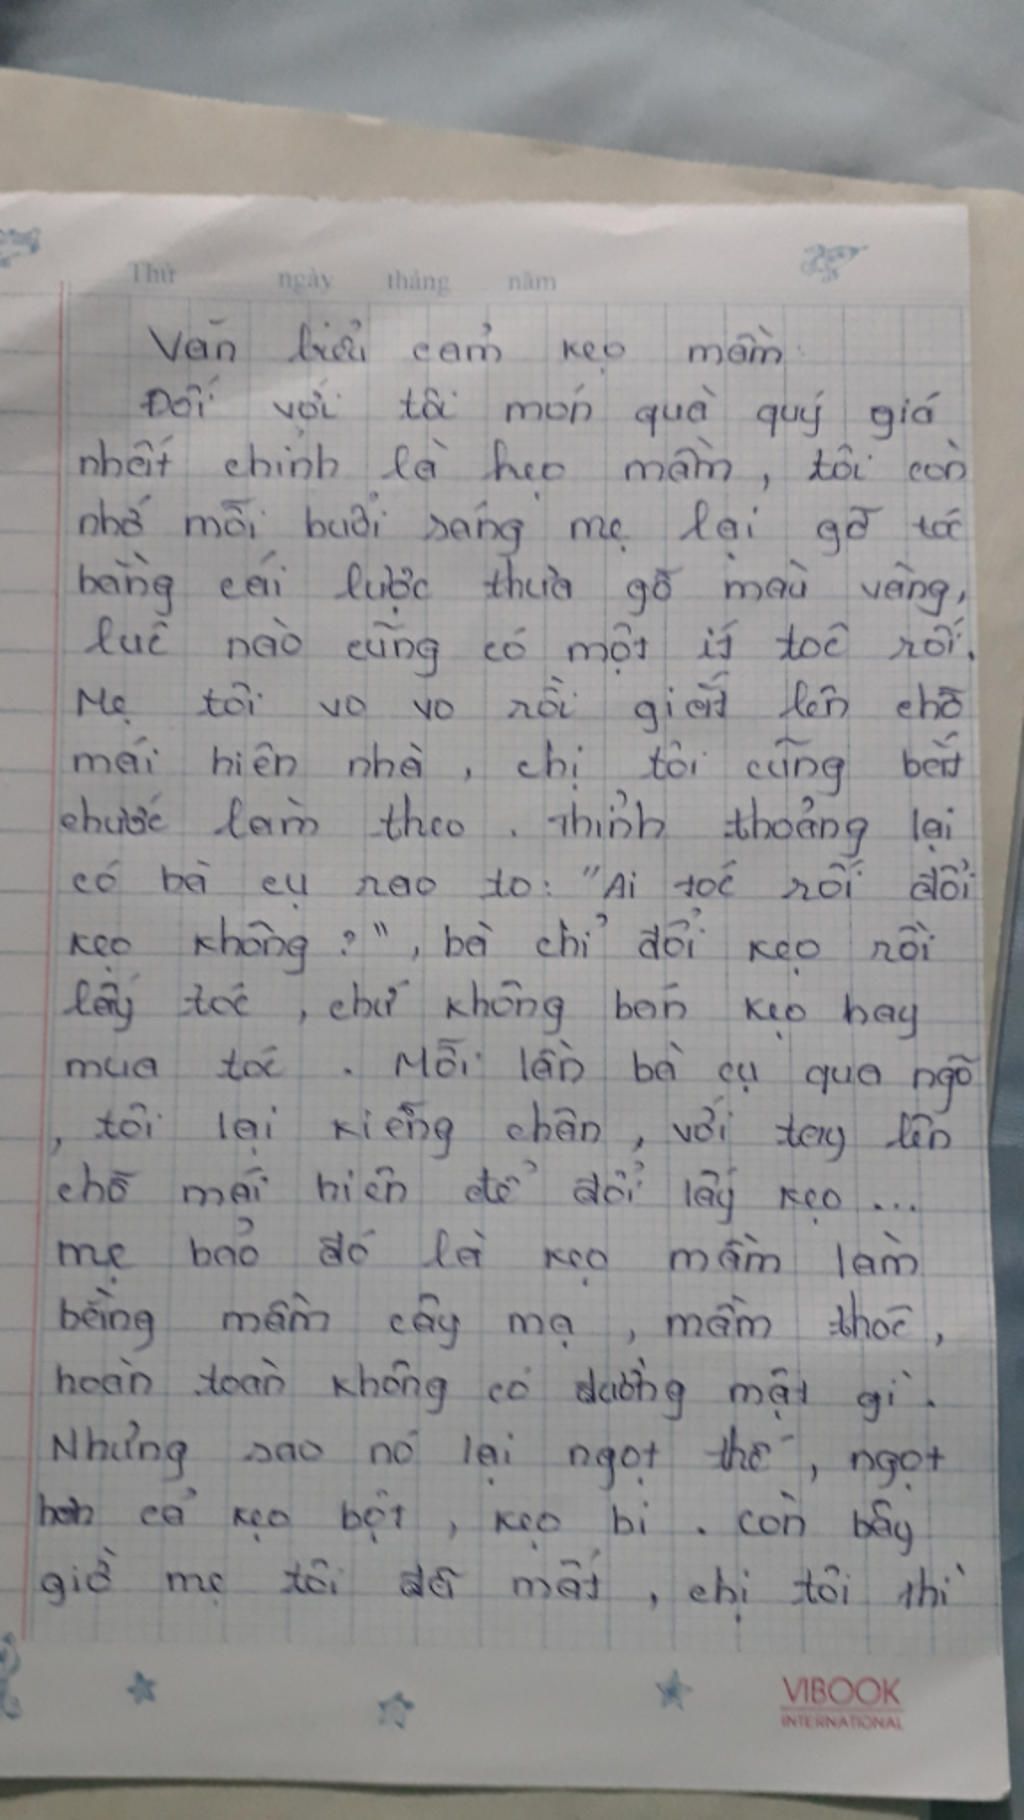 Thứ ngày tháng năm
Văn biểu cảm kẹo mầm.
Đối với tôi món quà quý giá
nhất chính là kẹo mầm, tôi còn
nhớ mỗi buổi sáng mẹ lại gỡ tóc
bằng cái lược thưa gỗ màu vàng,
lúc nào cũng có một ít tóc rối.
Mẹ tôi vo vo rồi giắt lên chỗ
mái hiên nhà, chị tôi cũng bắt
chước làm theo. Thỉnh thoảng lại
có bà cụ rao to: "Ai tóc rối đổi
kẹo không?", bà chỉ đổi kẹo rồi
lấy tóc, chứ không bán kẹo hay
mua tóc. Mỗi lần bà cụ qua ngõ
, tôi lại kiễng chân, với tay lên
chỗ mái hiên để đổi lấy kẹo...
mẹ bảo đó là kẹo mầm làm
bằng mầm cây mạ, mầm thóc,
hoàn toàn không có đường mật gì.
Nhưng sao nó lại ngọt thế, ngọt
hơn cả kẹo bột, kẹo bi. còn bây
giờ mẹ tôi đã mất, chị tôi thì
VIBOOK
INTERNATIONAL